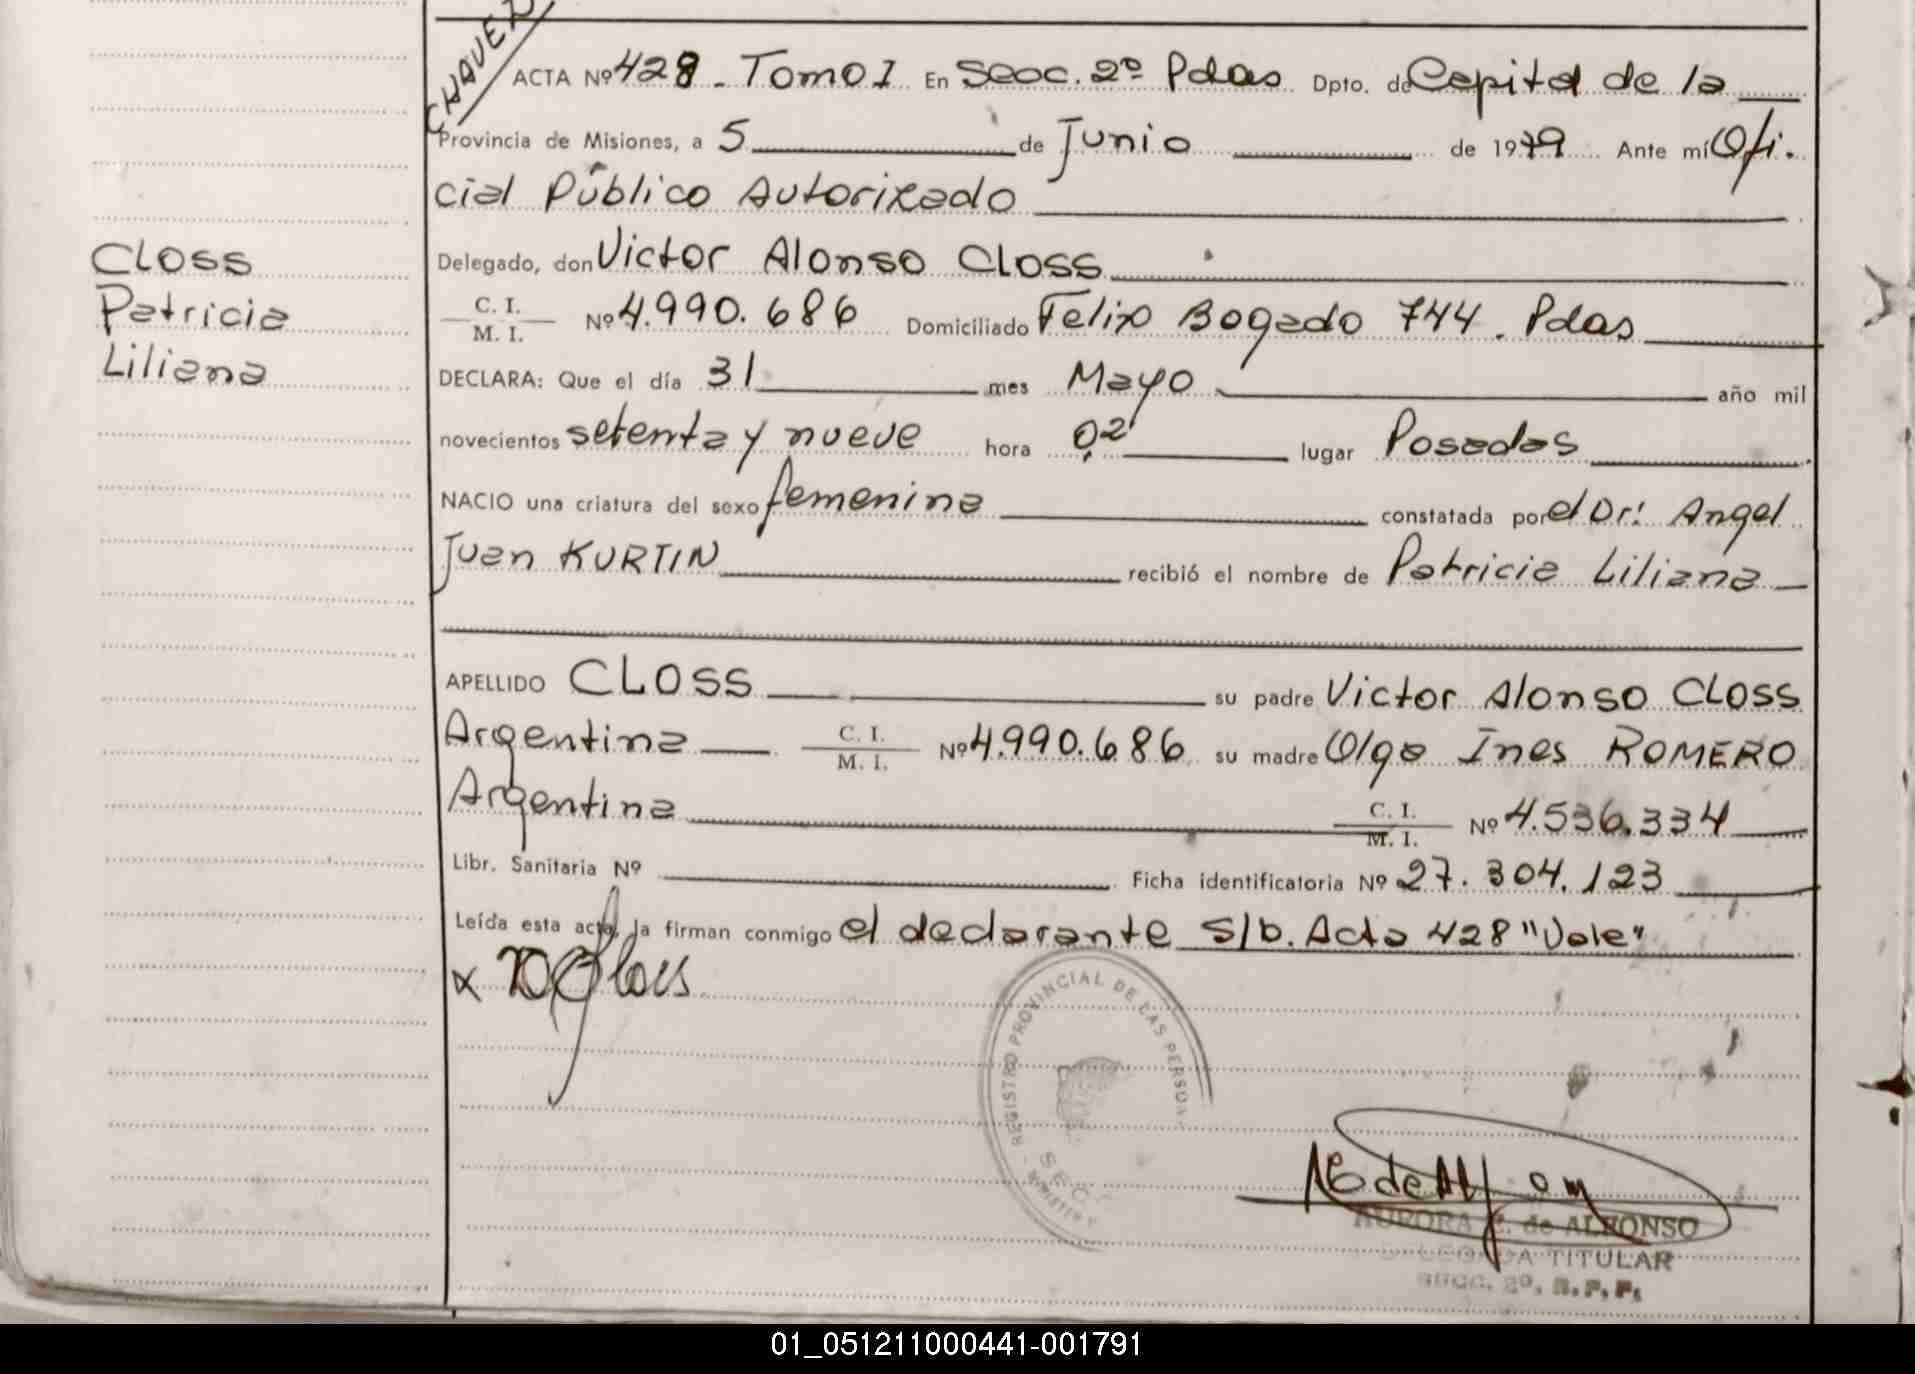 CHAVEZ
ACTA Nº 428 - Tomo I En Secc. 2º Pdas Dpto. de Capital de la
Provincia de Misiones, a 5 de Junio de 1979 Ante mí Ofi.
cial Público Autorizado
Delegado, don Victor Alonso Closs
C. I.
M. I. Nº 4.990.686 Domiciliado Felix Bogado 744. Pdas
DECLARA: Que el día 31 mes Mayo año mil
novecientos setenta y nueve hora 02 lugar Posadas
NACIO una criatura del sexo femenina constatada por el Dr: Angel
Juan KURTIN recibió el nombre de Patricia Liliana
APELLIDO CLOSS su padre Victor Alonso CLOSS
Argentina C. I. M. I. Nº 4.990.686 su madre Olga Ines ROMERO
Argentina C. I. M. I. Nº 4.536.334
Libr. Sanitaria Nº Ficha identificatoria Nº 27.304.123
Leída esta acta, la firman conmigo el declarante S/b. Acta 428 "Vale"
Closs
Patricia
Liliana
REGISTRO PROVINCIAL DE LAS PERSONAS
SECC
AURORA de ALFONSO
DELEGADA TITULAR
SECC. 2º, R.P.P.
01_051211000441-001791